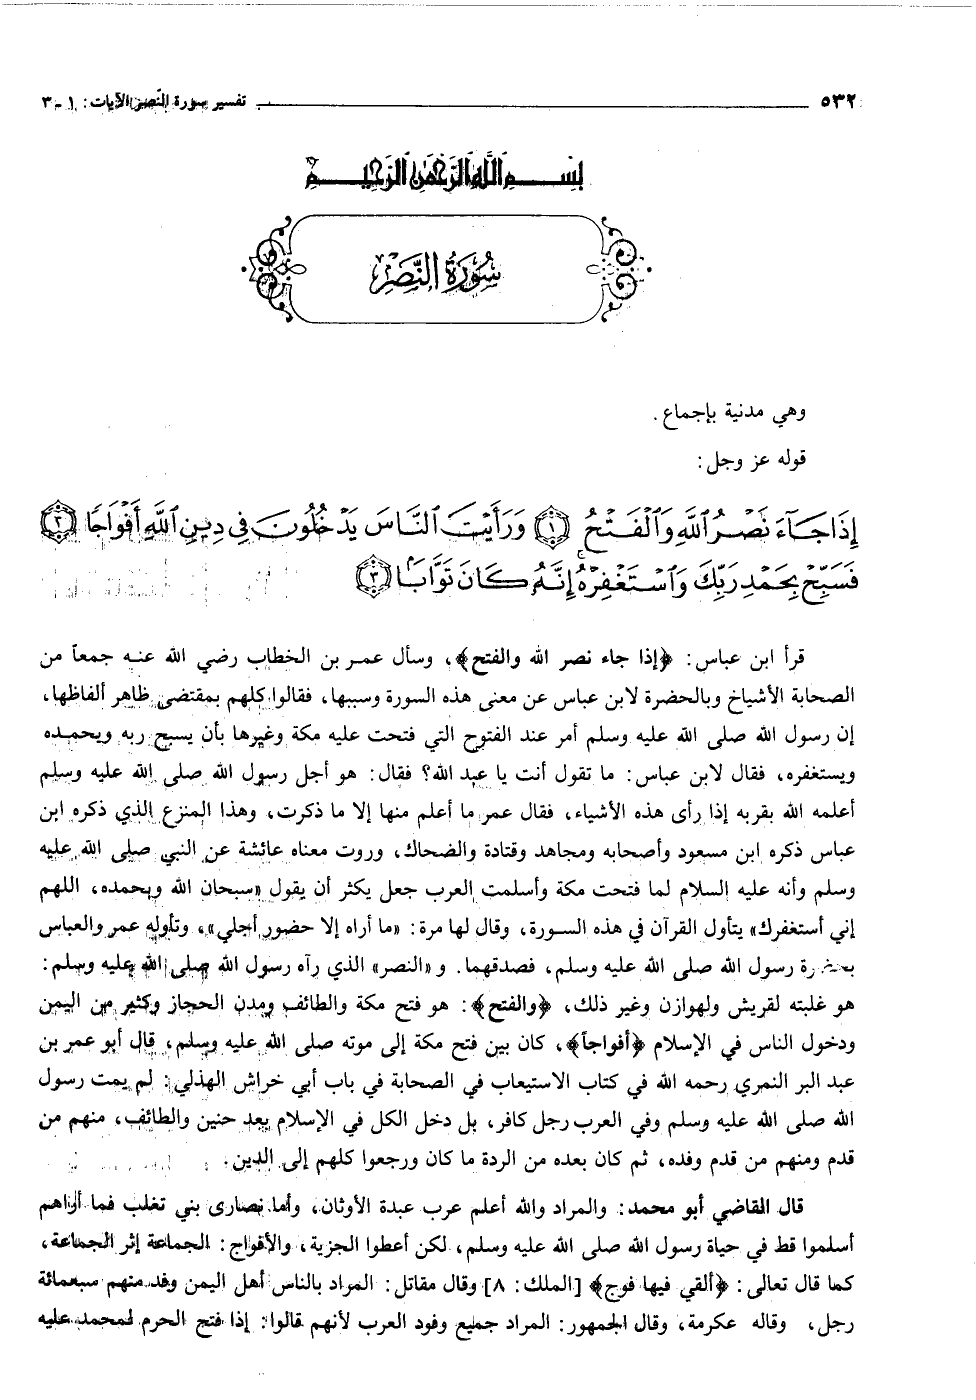 ٥٣٢ تفسير سورة النصر/الآيات: ١ - ٣
بِسْمِ ٱللَّهِ ٱلرَّحْمَٰنِ ٱلرَّحِيمِ
سُورَةُ النَّصْرِ
وهي مدنية بإجماع.
قوله عز وجل:
إِذَا جَآءَ نَصْرُ ٱللَّهِ وَٱلْفَتْحُ ﴿١﴾ وَرَأَيْتَ ٱلنَّاسَ يَدْخُلُونَ فِى دِينِ ٱللَّهِ أَفْوَاجًا ﴿٢﴾
فَسَبِّحْ بِحَمْدِ رَبِّكَ وَٱسْتَغْفِرْهُ ۚ إِنَّهُۥ كَانَ تَوَّابًۢا ﴿٣﴾
قرأ ابن عباس: ﴿إذا جاء نصر الله والفتح﴾، وسأل عمر بن الخطاب رضي الله عنه جمعاً من
الصحابة الأشياخ وبالحضرة لابن عباس عن معنى هذه السورة وسببها، فقالوا كلهم بمقتضى ظاهر ألفاظها،
إن رسول الله صلى الله عليه وسلم أمر عند الفتوح التي فتحت عليه مكة وغيرها بأن يسبح ربه ويحمده
ويستغفره، فقال لابن عباس: ما تقول أنت يا عبد الله؟ فقال: هو أجل رسول الله صلى الله عليه وسلم
أعلمه الله بقربه إذا رأى هذه الأشياء، فقال عمر ما أعلم منها إلا ما ذكرت، وهذا المنزع الذي ذكره ابن
عباس ذكره ابن مسعود وأصحابه ومجاهد وقتادة والضحاك، وروت معناه عائشة عن النبي صلى الله عليه
وسلم وأنه عليه السلام لما فتحت مكة وأسلمت العرب جعل يكثر أن يقول «سبحان الله وبحمده، اللهم
إني أستغفرك» يتأول القرآن في هذه السورة، وقال لها مرة: «ما أراه إلا حضور أجلي»، وتأوله عمر والعباس
بحضرة رسول الله صلى الله عليه وسلم، فصدقهما. و«النصر» الذي رآه رسول الله صلى الله عليه وسلم:
هو غلبته لقريش ولهوازن وغير ذلك، ﴿والفتح﴾: هو فتح مكة والطائف ومدن الحجاز وكثير من اليمن
ودخول الناس في الإسلام ﴿أفواجاً﴾، كان بين فتح مكة إلى موته صلى الله عليه وسلم، قال أبو عمر بن
عبد البر النمري رحمه الله في كتاب الاستيعاب في الصحابة في باب أبي خراش الهذلي: لم يمت رسول
الله صلى الله عليه وسلم وفي العرب رجل كافر، بل دخل الكل في الإسلام بعد حنين والطائف، منهم من
قدم ومنهم من قدم وفده، ثم كان بعده من الردة ما كان ورجعوا كلهم إلى الدين.
قال القاضي أبو محمد: والمراد والله أعلم عرب عبدة الأوثان، وأما نصارى بني تغلب فما أراهم
أسلموا قط في حياة رسول الله صلى الله عليه وسلم، لكن أعطوا الجزية، والأفواج: الجماعة إثر الجماعة،
كما قال تعالى: ﴿ألقي فيها فوج﴾ [الملك: ٨] وقال مقاتل: المراد بالناس أهل اليمن وفد منهم سبعمائة
رجل، وقاله عكرمة، وقال الجمهور: المراد جميع وفود العرب لأنهم قالوا: إذا فتح الحرم لمحمد عليه